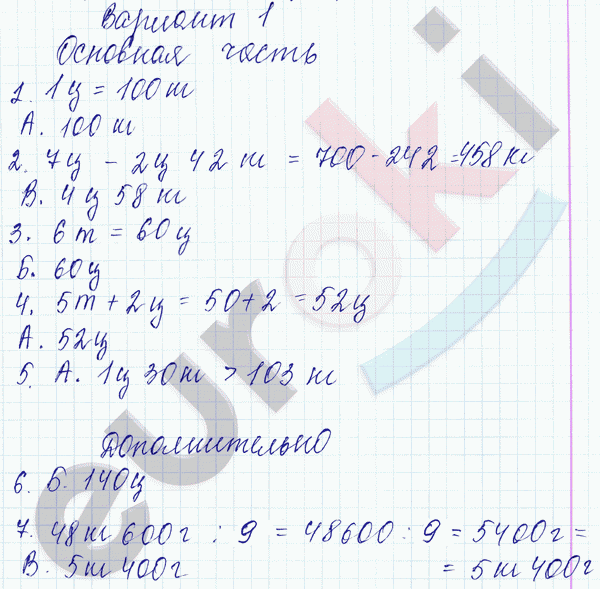 Вариант 1
Основная часть
1. 1 ц = 100 кг
А. 100 кг
2. 7 ц - 2 ц 42 кг = 700 - 242 = 458 кг
В. 4 ц 58 кг
3. 6 т = 60 ц
Б. 60 ц
4. 5 т + 2 ц = 50 + 2 = 52 ц
А. 52 ц
5. А. 1 ц 30 кг > 103 кг
Дополнительно
6. Б. 140 ц
7. 48 кг 600 г : 9 = 48600 : 9 = 5400 г =
В. 5 кг 400 г = 5 кг 400 г
euroki